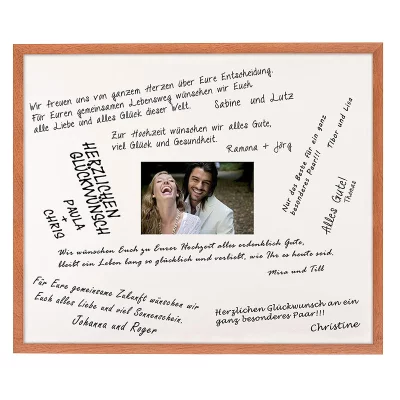 Wir freuen uns von ganzem Herzen über Eure Entscheidung.
Für Euren gemeinsamen Lebensweg wünschen wir Euch
alle Liebe und alles Glück dieser Welt.
Sabine und Lutz
Zur Hochzeit wünschen wir alles Gute,
viel Glück und Gesundheit.
Ramona + Jörg
Nur das Beste für ein ganz
besonderes Paar!!!
Tibor und Lisa
HERZLICHEN
GLÜCKWUNSCH
PAULA
+
CHRIS
Alles Gute!
Thomas
Wir wünschen Euch zu Eurer Hochzeit alles erdenklich Gute,
bleibt ein Leben lang so glücklich und verliebt, wie Ihr es heute seid.
Mira und Till
Für Eure gemeinsame Zukunft wünschen wir
Euch alles Liebe und viel Sonnenschein.
Johanna und Roger
Herzlichen Glückwunsch an ein
ganz besonderes Paar!!!
Christine